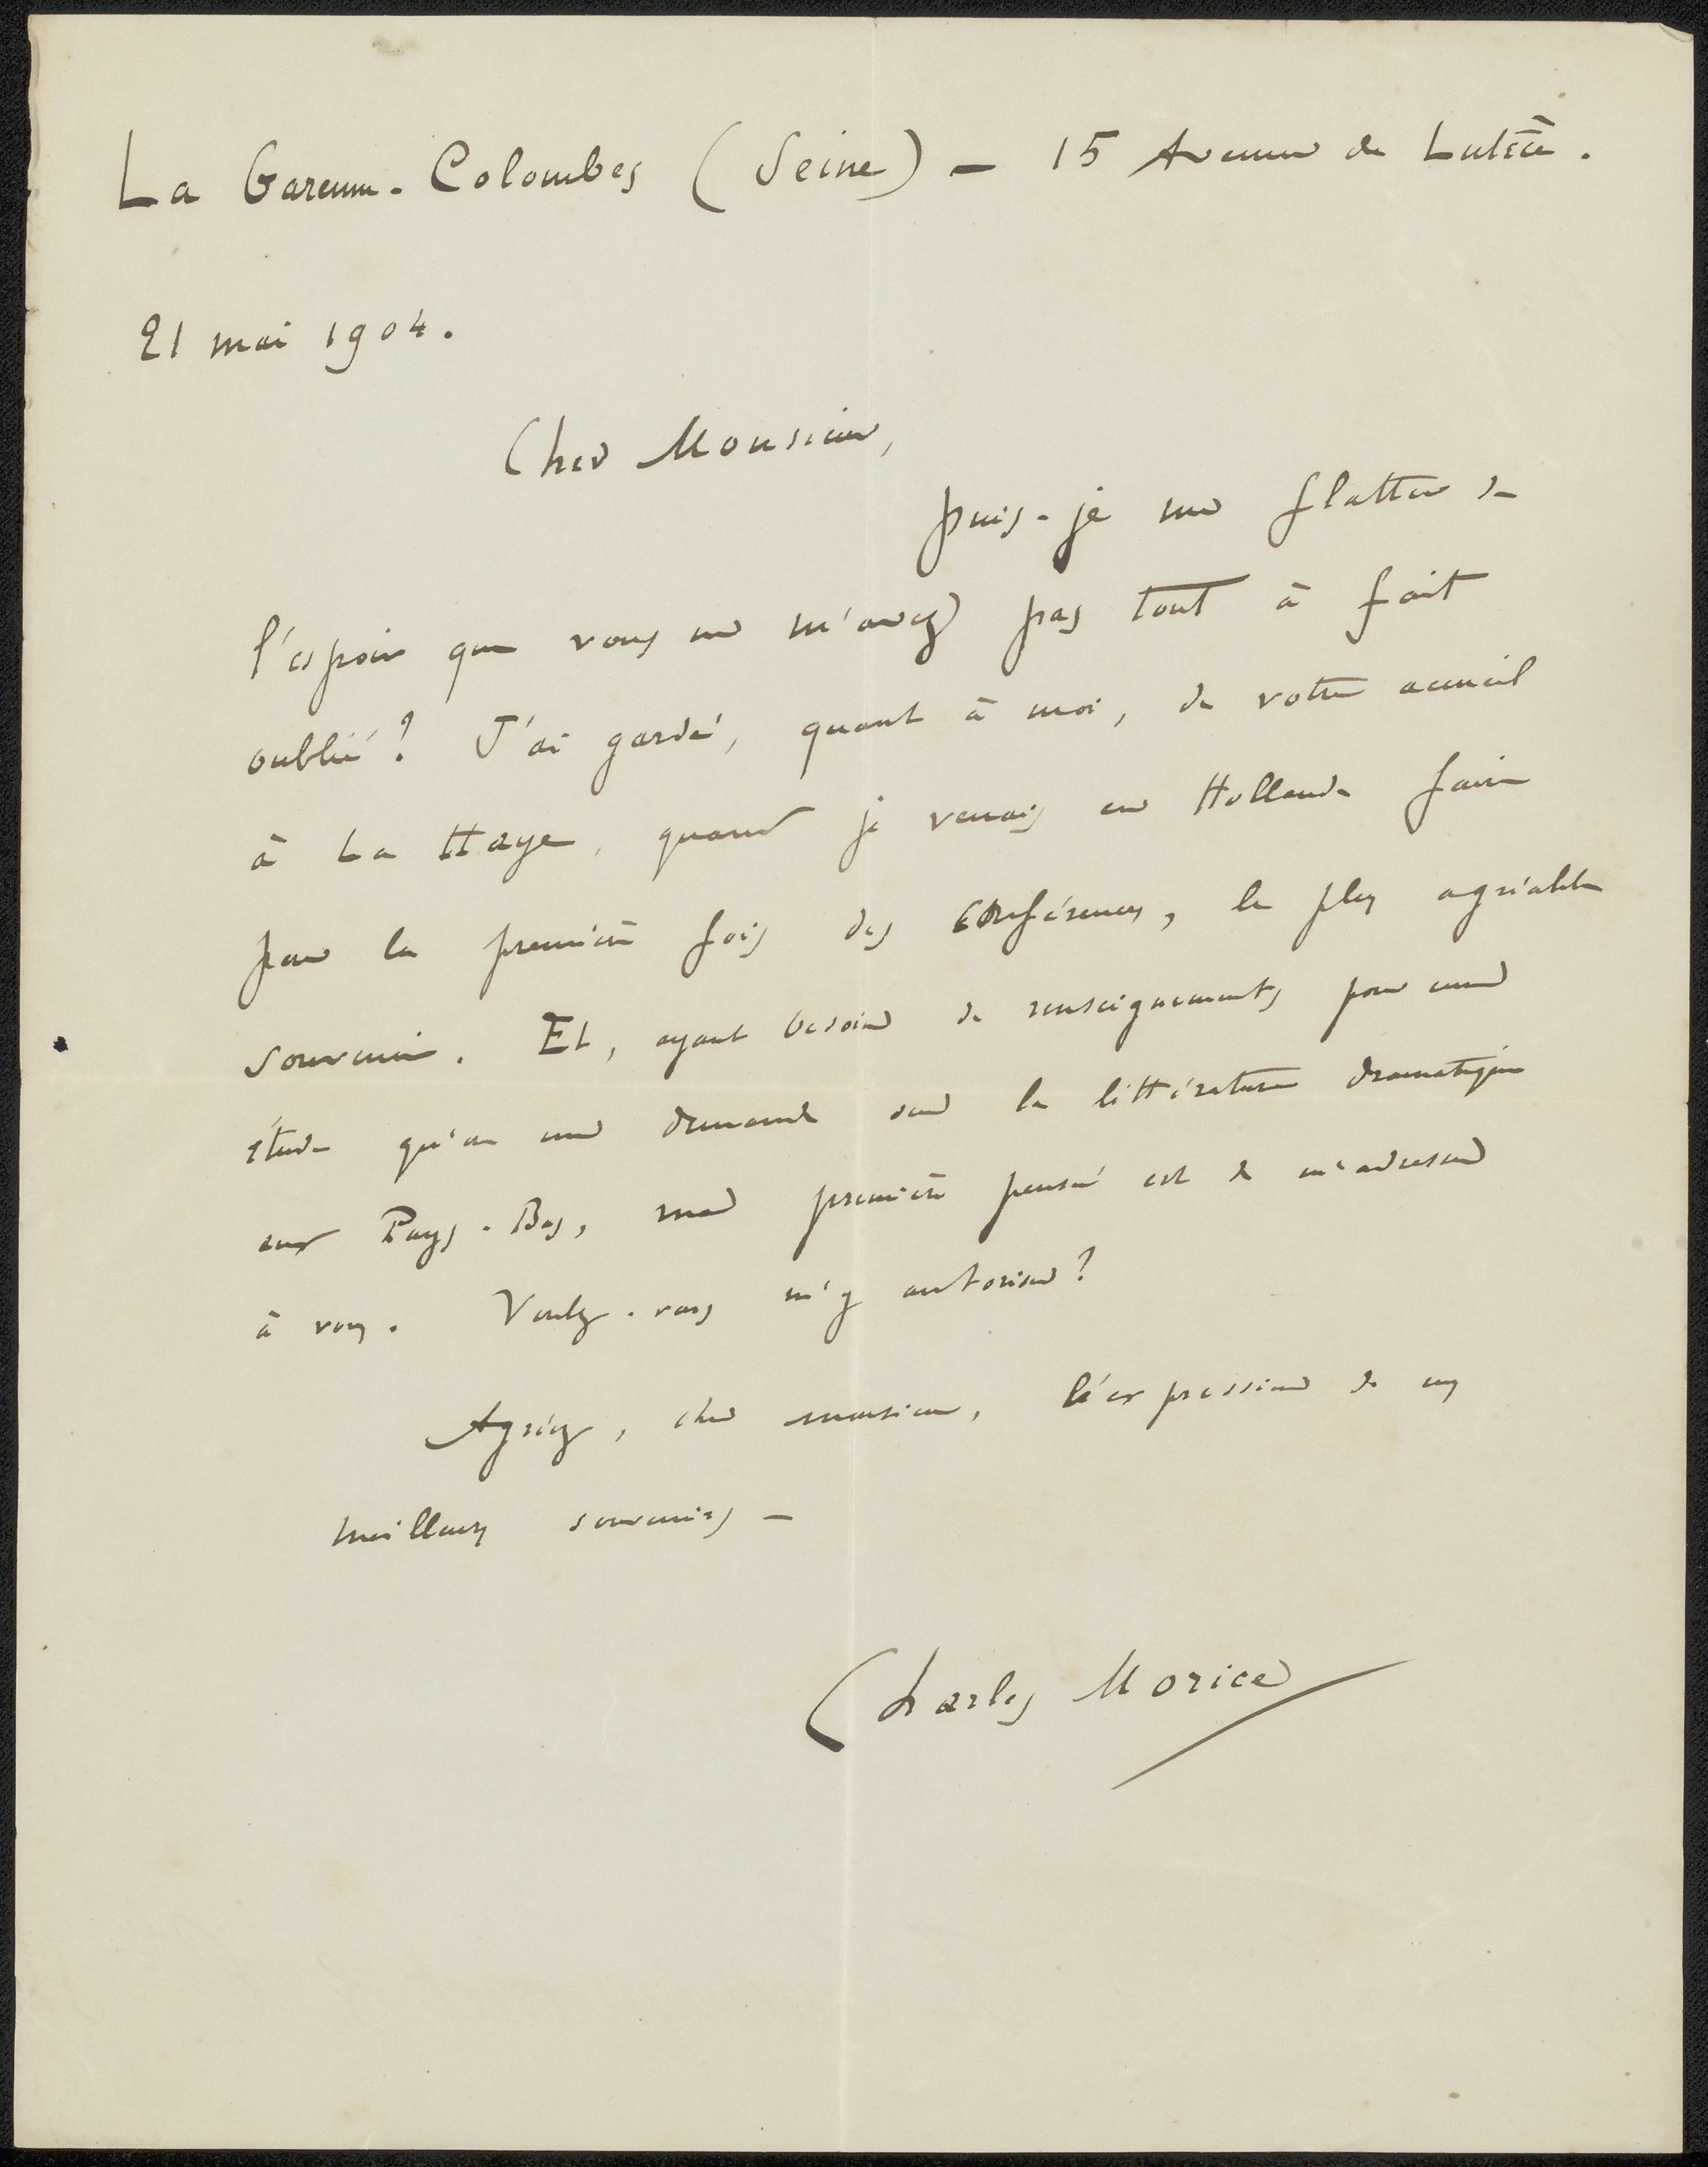 La Garenne-Colombes (Seine) — 15 Avenue de Lutèce.
21 mai 1904.
Cher Monsieur,
puis-je me flatter de
l'espoir que vous ne m'avez pas tout à fait
oublié? J'ai gardé, quant à moi, de votre accueil
à La Haye, quand je venais en Hollande faire
pour la première fois des conférences, le plus agréable
souvenir. Et, ayant besoin de renseignements pour une
étude qu'on me demande sur la littérature dramatique
aux Pays-Bas, ma première pensée est de m'adresser
à vous. Voulez-vous m'y autoriser?
Agréez, cher monsieur, l'expression de mes
meilleurs souvenirs —
Charles Morice